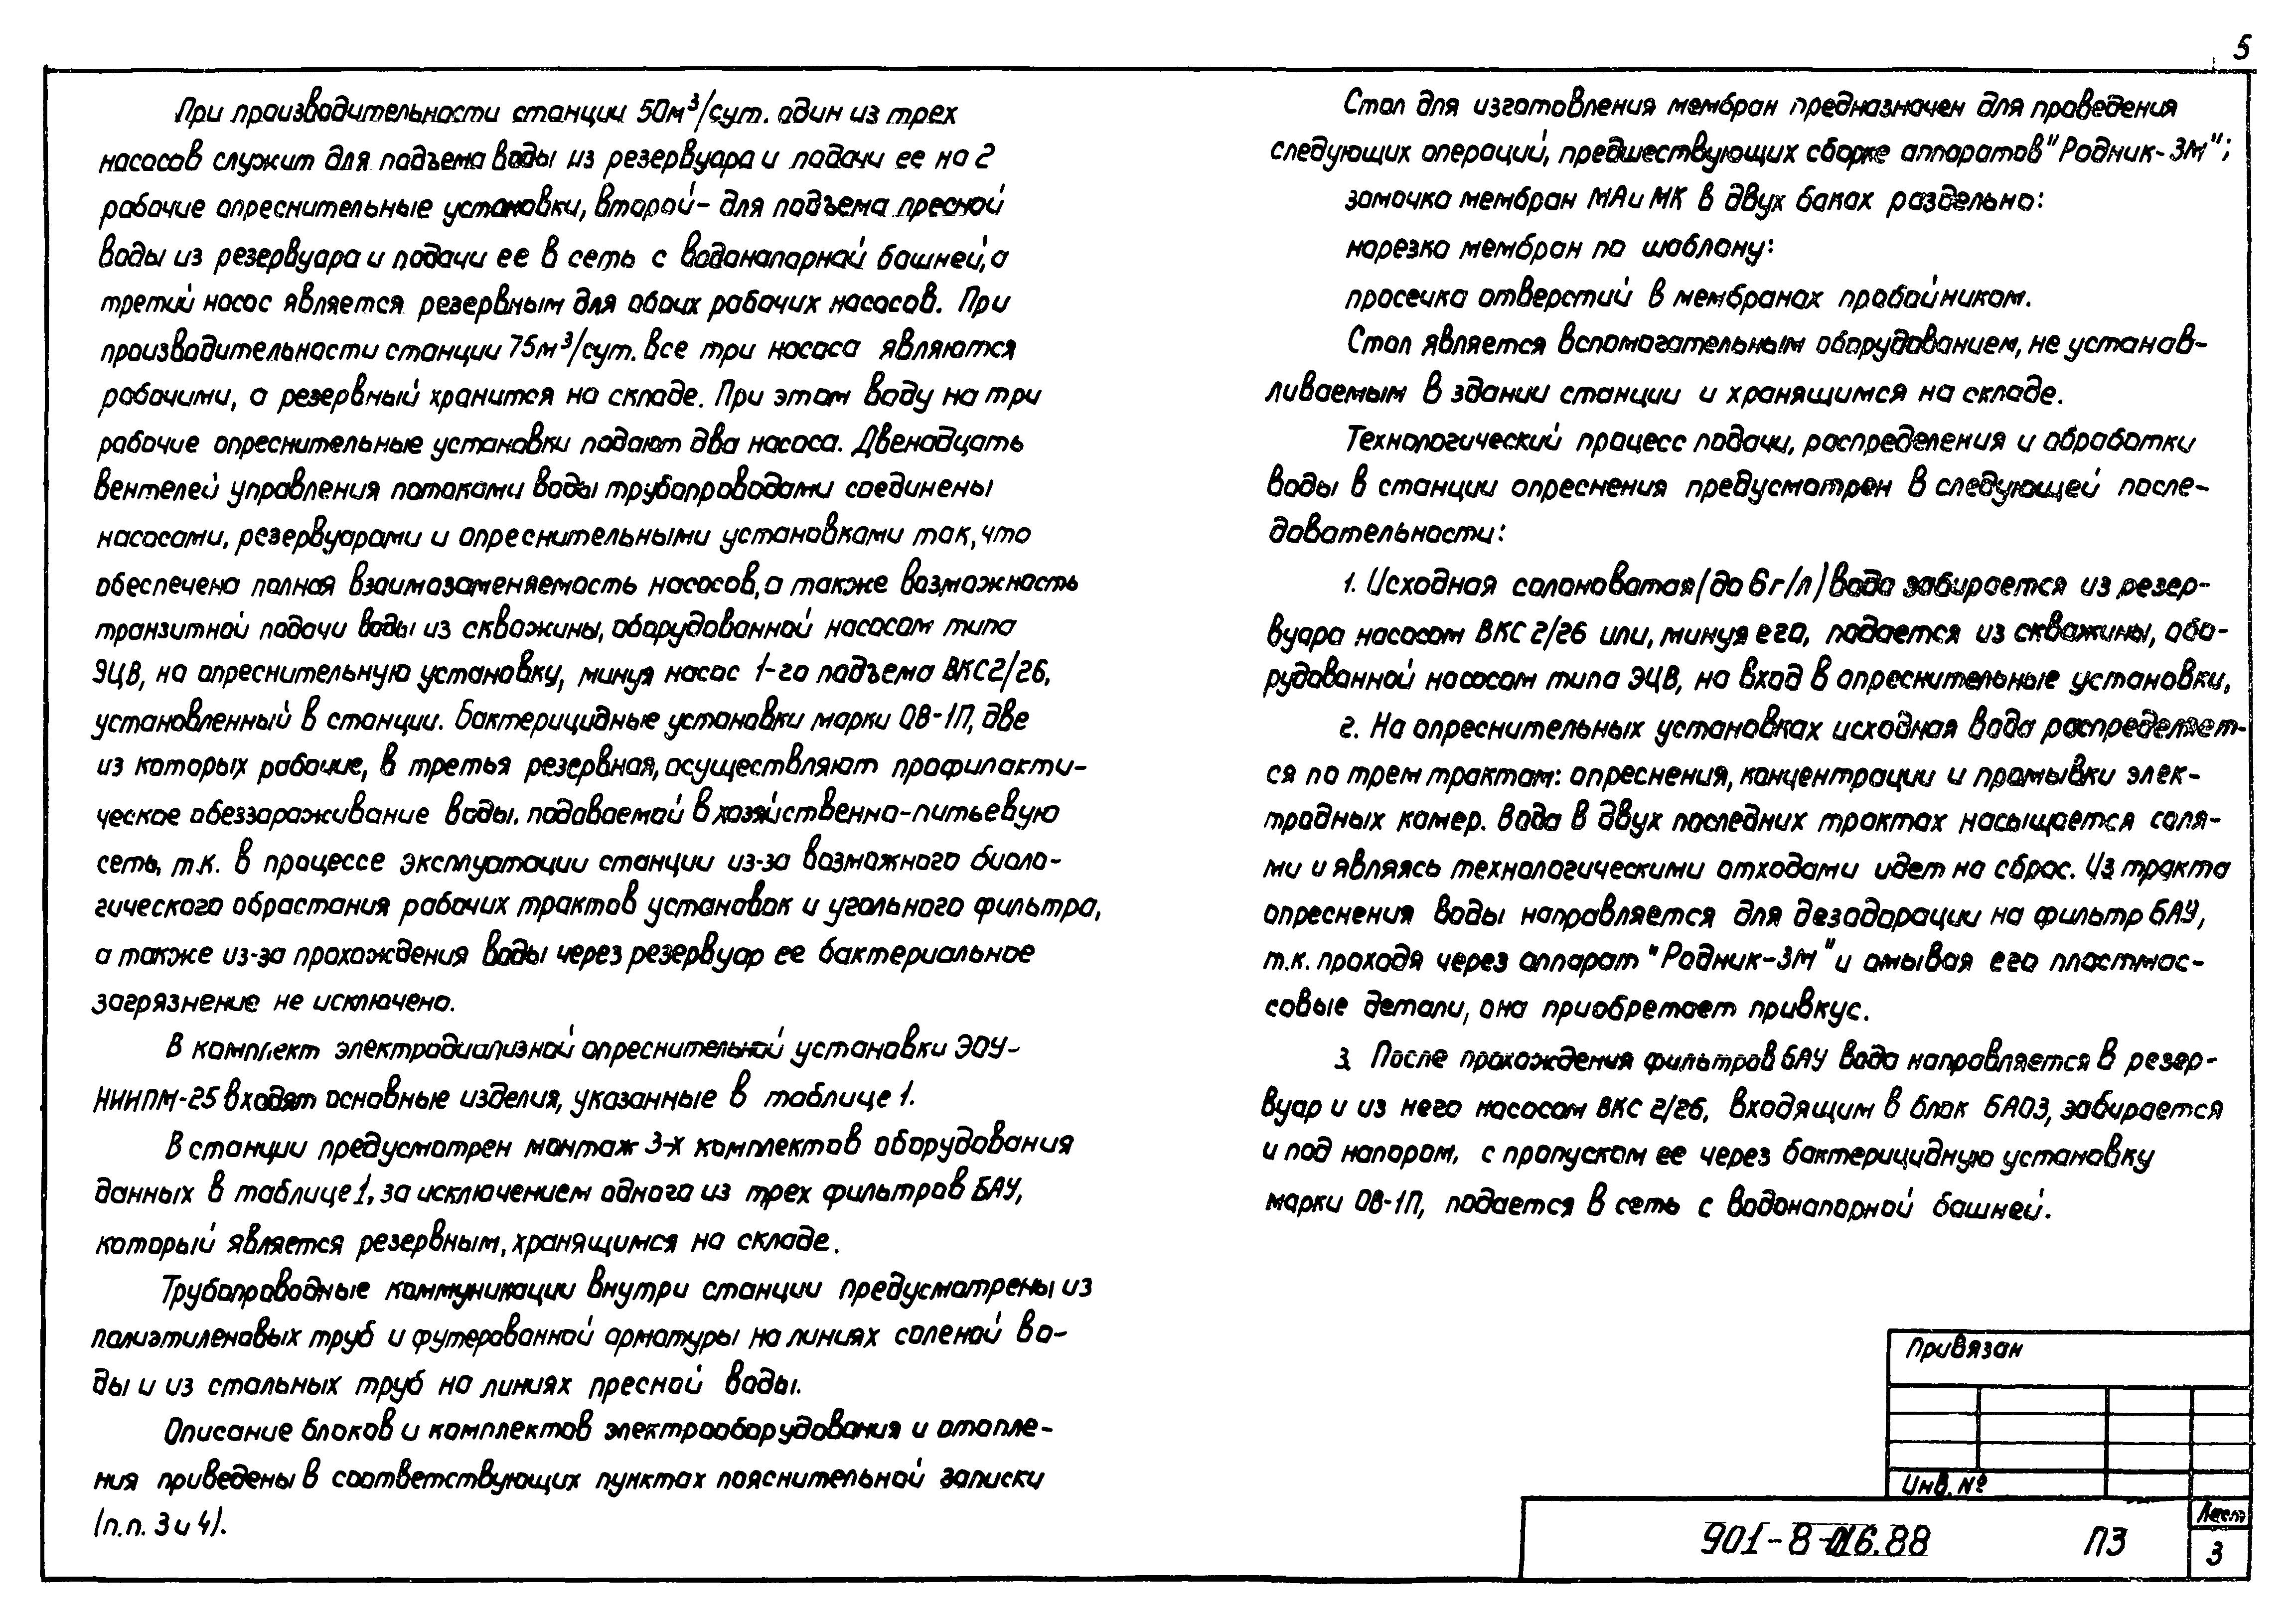 5
При производительности станции 50м³/сут. один из трех
насосов служит для подъема воды из резервуара и подачи ее на 2
рабочие опреснительные установки, второй - для подъема пресной
воды из резервуара и подачи ее в сеть с водонапорной башней, а
третий насос является резервным для обоих рабочих насосов. При
производительности станции 75м³/сут. все три насоса являются
рабочими, а резервный хранится на складе. При этом воду на три
рабочие опреснительные установки подают два насоса. Двенадцать
вентелей управления потоками воды трубопроводами соединены
насосами, резервуарами и опреснительными установками так, что
обеспечена полная взаимозаменяемость насосов, а также возможность
транзитной подачи воды из скважины, оборудованной насосом типа
ЭЦВ, на опреснительную установку, минуя насос 1-го подъема ВКС2/26,
установленный в станции. Бактерицидные установки марки ОВ-1П, две
из которых рабочие, в третья резервная, осуществляют профилакти-
ческое обеззараживание воды. подаваемой в хозяйственно-питьевую
сеть, т.к. в процессе эксплуатации станции из-за возможного биоло-
гического обрастания рабочих трактов установок и угольного фильтра,
а также из-за прохождения воды через резервуар ее бактериальное
загрязнение не исключено.
В комплект электродиализной опреснительной установки ЭОУ-
НИИПМ-25 входят основные изделия, указанные в таблице 1.
В станции предусмотрен монтаж 3-х комплектов оборудования
данных в таблице 1, за исключением одного из трех фильтров БАУ,
который является резервным, хранящимся на складе.
Трубопроводные коммуникации внутри станции предусмотрены из
полиэтиленовых труб и футерованной арматуры на линиях соленой во-
ды и из стальных труб на линиях пресной воды.
Описание блоков и комплектов электрооборудования и отопле-
ния приведены в соответствующих пунктах пояснительной записки
(п.п. 3 и 4).
Стол для изготовления мембран предназначен для проведения
следующих операций, предшествующих сборке аппаратов "Родник-3М";
замочка мембран МА и МК в двух баках раздельно:
нарезка мембран по шаблону:
просечка отверстий в мембранах пробойником.
Стол является вспомогательным оборудованием, не устанав-
ливаемым в здании станции и хранящимся на складе.
Технологический процесс подачи, распределения и обработки
воды в станции опреснения предусмотрен в следующей после-
довательности:
1. Исходная солоноватая (до 6 г/л) вода забирается из резер-
вуара насосом ВКС 2/26 или, минуя его, подается из скважины, обо-
рудованной насосом типа ЭЦВ, на вход в опреснительные установки,
2. На опреснительных установках исходная вода распределяет-
ся по трем трактам: опреснения, концентрации и промывки элек-
тродных камер. Вода в двух последних трактах насыщается соля-
ми и являясь технологическими отходами идет на сброс. Из тракта
опреснения воды направляется для дезодорации на фильтр БАУ,
т.к. проходя через аппарат "Родник-3М" и омывая его пластмас-
совые детали, она приобретает привкус.
3. После прохождения фильтров БАУ вода направляется в резер-
вуар и из него насосом ВКС 2/26, входящим в блок БАОЗ, забирается
и под напором, с пропуском ее через бактерицидную установку
марки ОВ-1П, подается в сеть с водонапорной башней.
Привязан
Инв. №
901-8-016.88 ПЗ
Лист
3